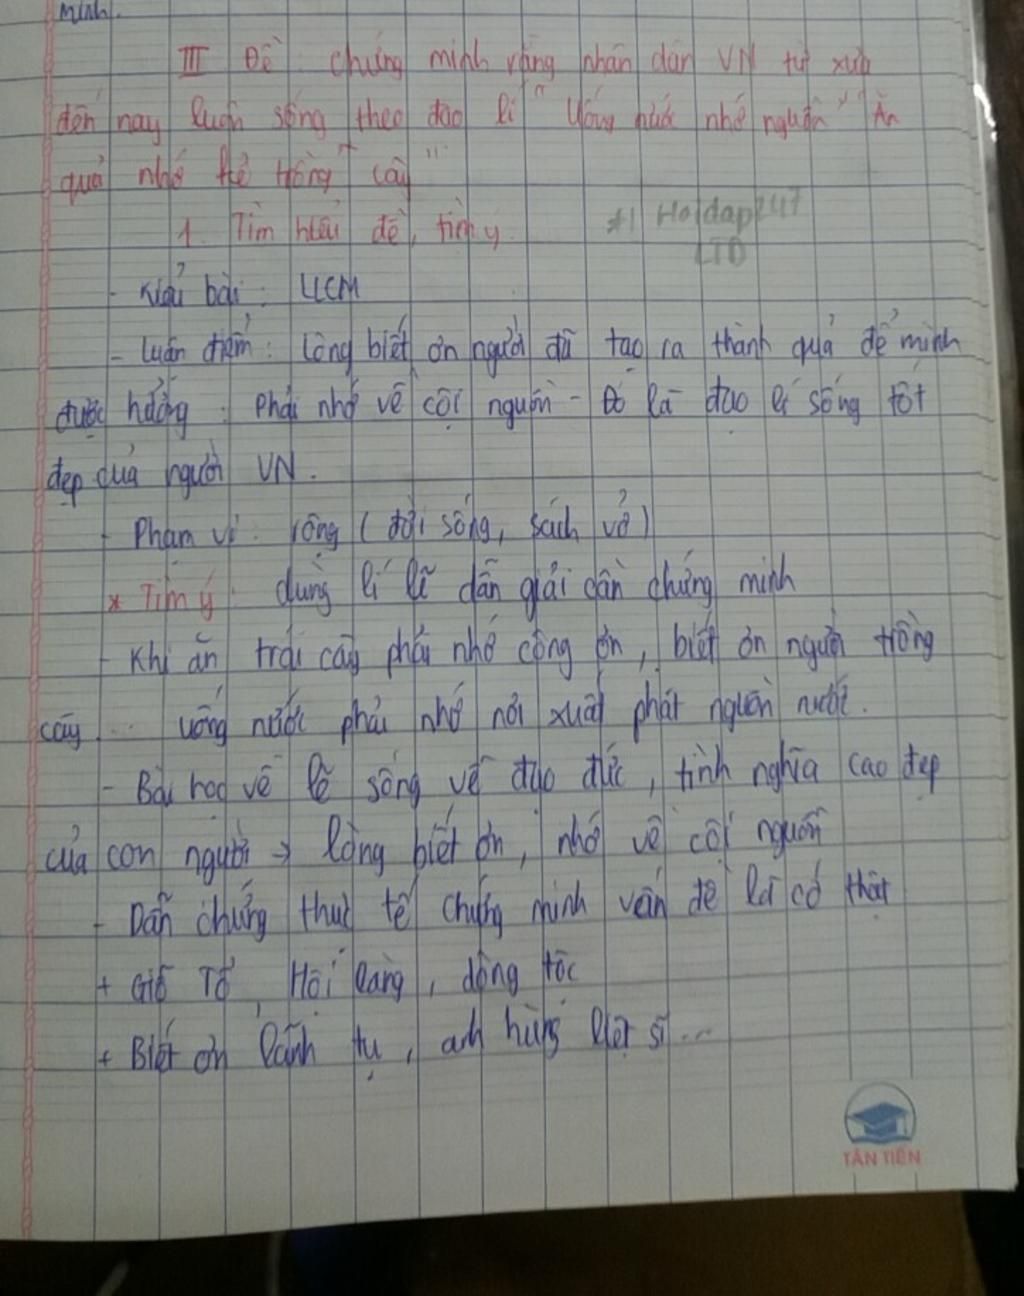 minh.
III Đề: chứng minh rằng nhân dân VN từ xưa
đến nay luôn sống theo đạo lí "Uống nước nhớ nguồn" "Ăn
quả nhớ kẻ trồng cây"
1. Tìm hiểu đề, tìm ý.
#1 Hoidap247
LTD
- Kiểu bài: LLCM
- Luận điểm: Lòng biết ơn người đã tạo ra thành quả để mình
được hưởng: Phải nhớ về cội nguồn - Đó là đạo lí sống tốt
đẹp của người VN.
- Phạm vi: rộng (đời sống, sách vở)
* Tìm ý: dùng lí lẽ dẫn giải cần chứng minh
- Khi ăn trái cây phải nhớ công ơn, biết ơn người trồng
cây... uống nước phải nhớ nơi xuất phát nguồn nước.
- Bài học về lẽ sống về đạo đức, tình nghĩa cao đẹp
của con người → lòng biết ơn, nhớ về cội nguồn
- Dẫn chứng thực tế chứng minh vấn đề là có thật
+ Giỗ Tổ, Hội làng, dòng tộc
+ Biết ơn lãnh tụ, anh hùng liệt sĩ...
TÂN TIẾN